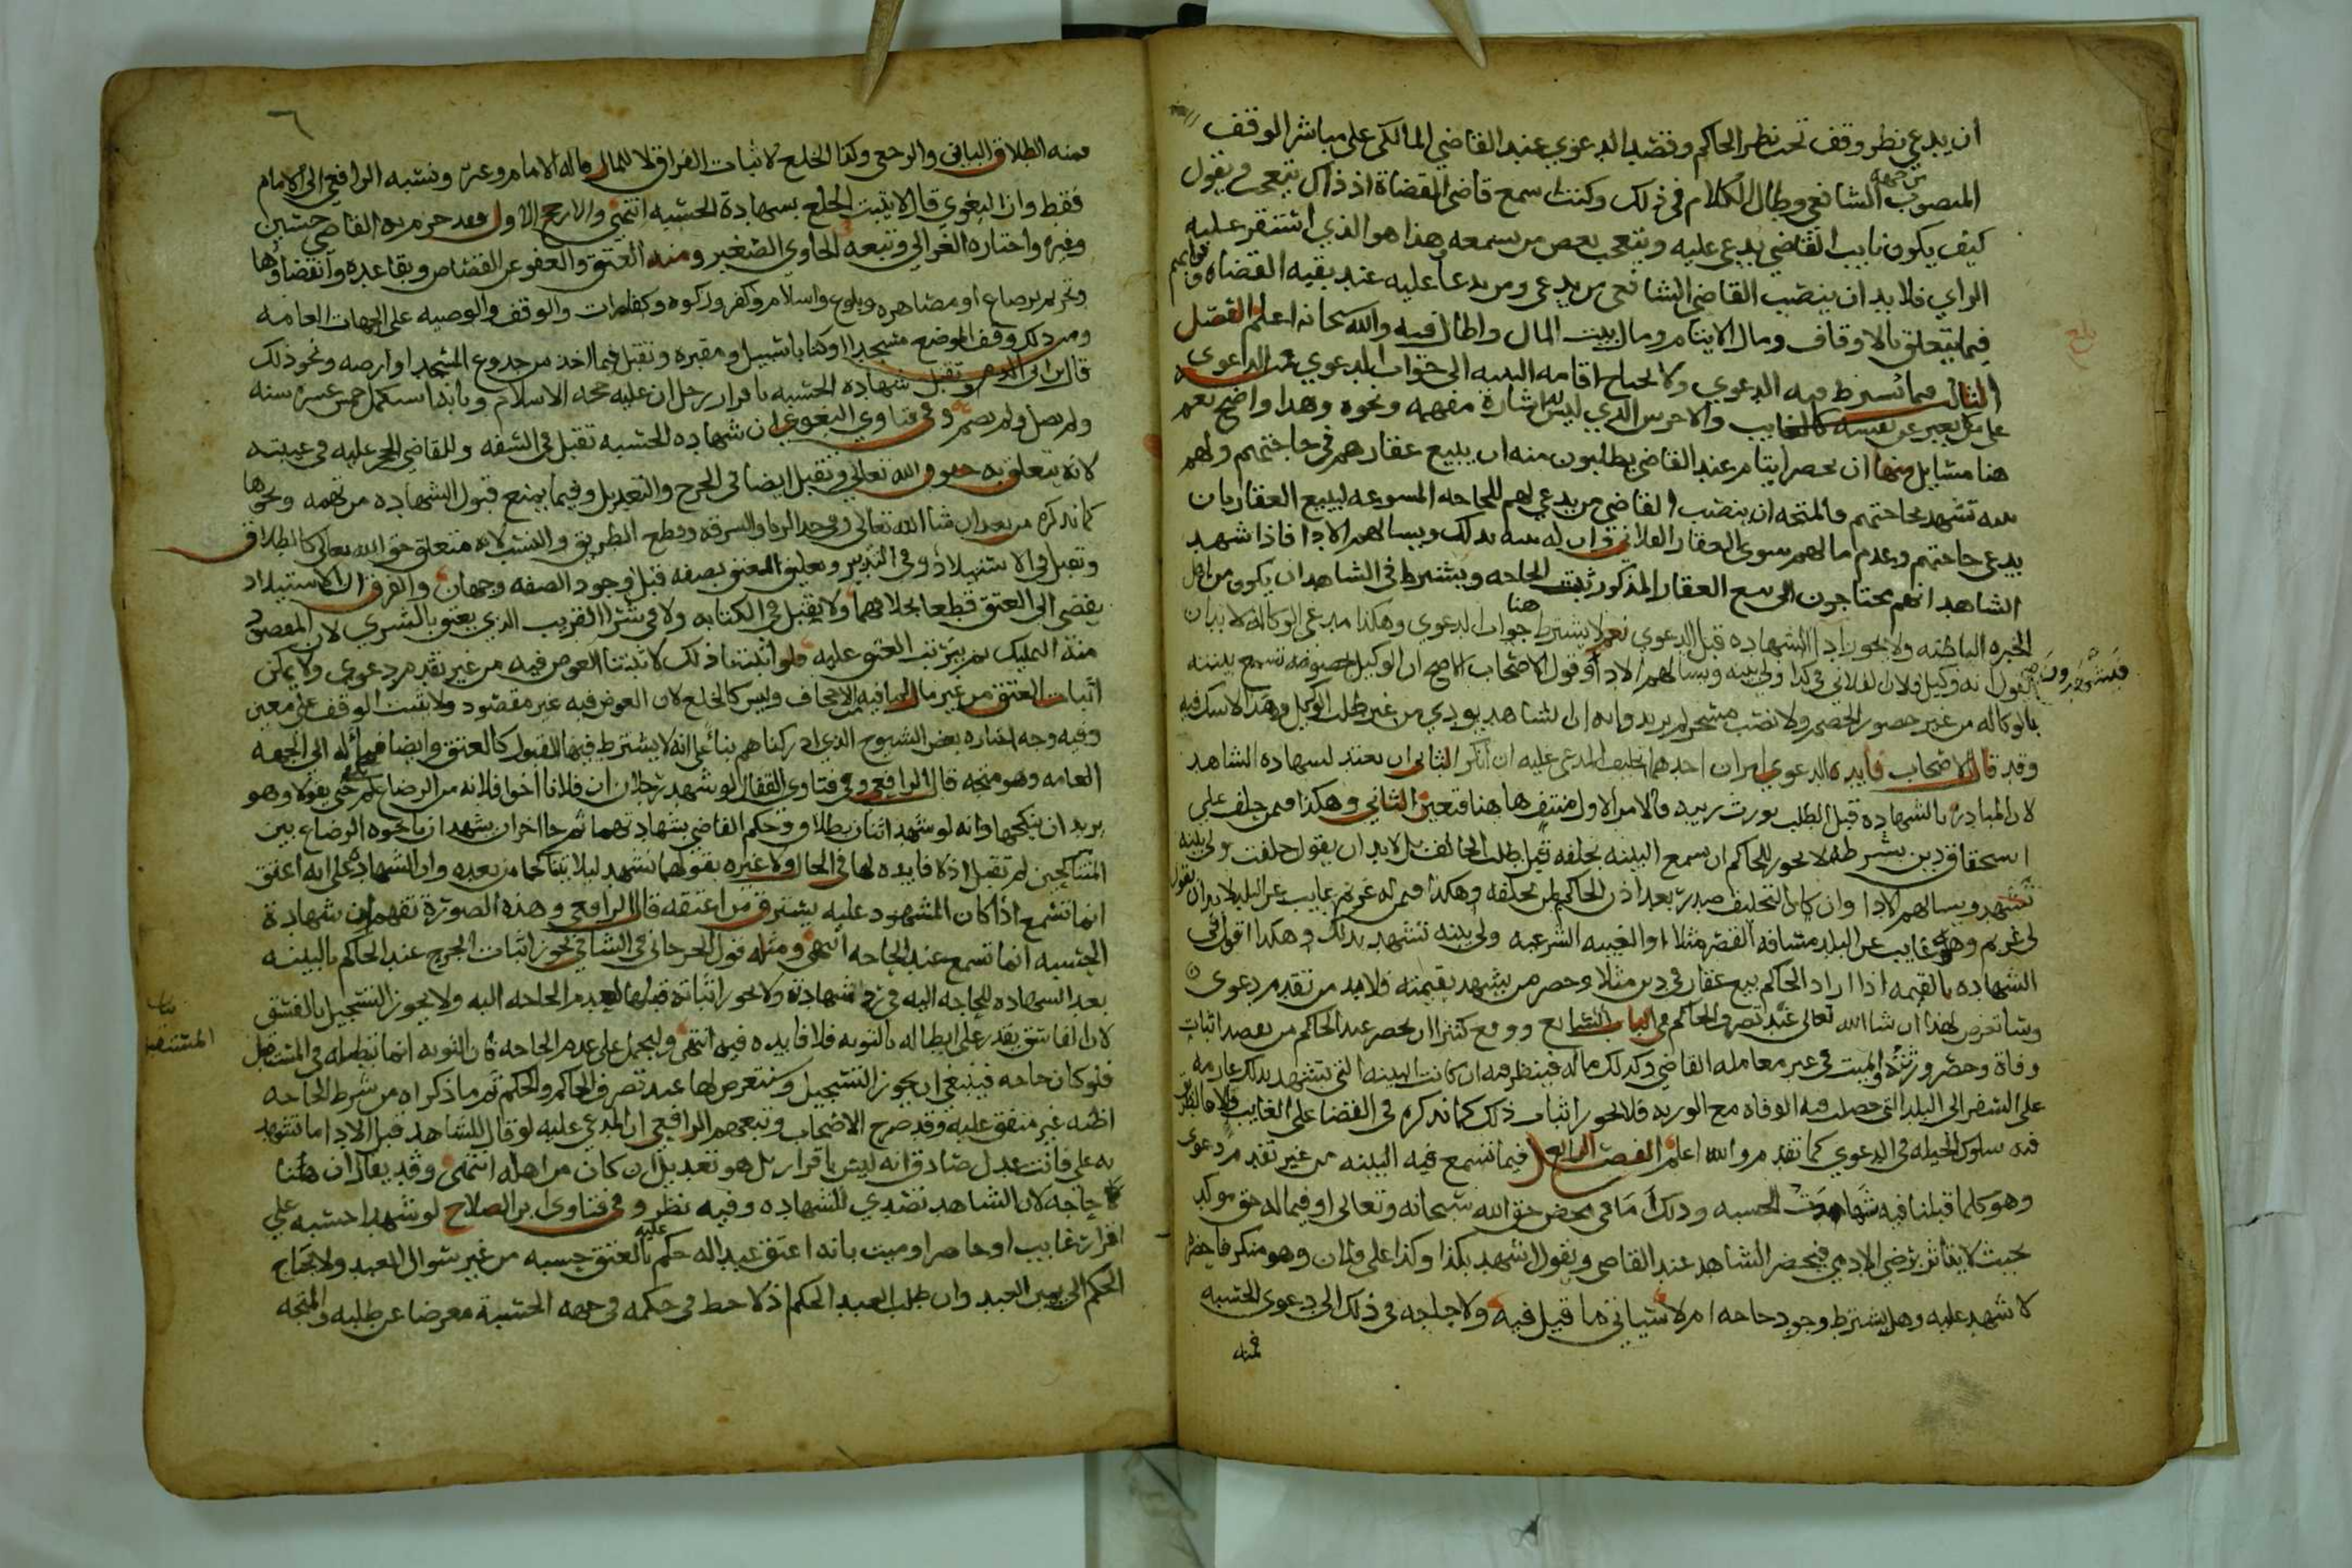 ان يدعي نظر وقف تحت نظر الحاكم وقصد الدعوي عند القاضي المالكي على مباشر الوقف
المنصوب من جهة الشافعي وطال الكلام في ذلك وكنت اسمع قاضي القضاة اذ ذاك يتعجب ويقول
كيف يكون نايب القاضي يدعى عليه ويتعجب بعض من يسمعه وهذا هو الذي استقر عليه
الراي فلا بد ان ينصب القاضي الشافعي من يدعي ومن يدعا عليه عند بقيه القضاه ونوابهم
فيما يتعلق بالاوقاف ومال الايتام ومال بيت المال واطال فيه والله سبحانه اعلم الفصل
الثالث فيما تشترط فيه الدعوي ولا يحتاج اقامه البينه الى جواب الدعوي من الداعوى
على من لا يعبر عن نفسه كالغايب والاخرس الذي ليس له اشارة مفهمه ونحوه وهذا واضح نعم
هنا مسايل منها ان يحضر ايتام عند القاضي يطلبون منه ان يبيع عقارهم في حاجتهم ولهم
بينه تشهد بحاجتهم فالمتجه ان ينصب القاضي من يدعي لهم للحاجه المسوغه لبيع العقار بان
يدعي حاجتهم وعدم مال لهم سوى العقار الفلاني وان له بينه بذلك ويسالهم الادا فاذا شهد
الشاهد انهم محتاجون الى بيع العقار المذكور ثبتت الحاجه ويشترط في الشاهد ان يكون من اهل
الخبره الباطنه ولا يجوز ادا الشهاده قبل الدعوي نعم لا يشترط هنا جواب الدعوي وهكذا مدعي الوكاله لا بد ان
يقول انه وكيل فلان الفلاني في كذا ولي بينه ويسالهم الادا وقول الاصحاب الاصح ان الوكيل بخصومه تسمع بينته
بالوكاله من غير حضور الخصم ولا نصب مسخر لم يريدوا به ان الشاهد يودي من غير طلب الوكيل وهذا لا شك فيه
وقد قال الاصحاب فايده الدعوي امران احدهما تحليف المدعى عليه ان انكر الثاني ان يعتد لشهاده الشاهد
لان المبادرة بالشهاده قبل الطلب يورث ريبه فالامر الاول منتف ها هنا فتعين الثاني وهكذا فمن حلف على
استحقاق دين بشرطه لا يجوز للحاكم ان يسمع البينه بحلفه قبل طلب الحالف بل لا بد ان يقول حلفت ولي بينه
تشهد ويسالهم الادا وان كان التحليف صدر بعد اذن الحاكم لمن يحلفه وهكذا فيمن له غريم غايب عن البلد لا بد ان يقول
لي غريم وهو غايب عن البلد مسافه القصر مثلا او الغيبه الشرعيه ولي بينه تشهد بذلك وهكذا اقول في
الشهاده بالقيمه اذا اراد الحاكم بيع عقار في دين مثلا وحضر من يشهد بقيمته فلا بد من تقدم دعوى
وساتعرض لهذا ان شا الله تعالى عند تصرف الحاكم في الباب السابع ووقع كثيرا ان يحضر عند الحاكم من يقصد اثبات
وفاة وحضر ورثته والميت في غير معامله القاضي وكذلك ماله فينظر فيه ان كانت البينه التي تشهد بذلك عازمه
على السفر الى البلد التي حصلت فيه الوفاه مع الورثه فلا يجوز اثبات ذلك كما نذكره في القضا على الغايب
فيه سلوك الحيله في الدعوي كما تقدم والله اعلم الفصل الرابع فيما تسمع فيه البينه من غير تقدم دعوى
وهو كلما قبلنا فيه شهادة الحسبه وذلك اما في محض حق الله سبحانه وتعالى او فيما له حق موكد
بحيث لا يتاثر برضى الادمي فيحضر الشاهد عند القاضي ويقول اشهد بكذا وكذا على فلان وهو منكر فاحضره
لا شهد عليه وهل يشترط وجود حاجه ام لا سياتي ما قيل فيه ولا حاجه في ذلك الى دعوى الحسبه
فمنه
٦
فمنه الطلاق الباين والرجعي وكذا الخلع لاثبات الفراق لا للمال قاله الامام وغيره ونسبه الرافعي الى الامام
فقط وان البغوي قال لا يثبت الخلع بشهادة الحسبه انتهى والارجح الاول وقد جزم به القاضي حسين
وغيره واختاره الغزالي وتبعه الحاوي الصغير ومنه العتق والعفو عن القصاص وبقا عده وانقضاوها
وتحريم برضاع او مصاهره وبلوغ واسلام وكفر وزكوه وكفارات والوقف والوصيه على الجهات العامه
ومن ذلك وقف الموضع مسجدا وكذا باسبيل ومقبره وتقبل فيما اخذ من جذوع المسجد او ارضه ونحو ذلك
قال ابن ابي الدم وتقبل شهاده الحسبه باقرار رجل ان عليه حجه الاسلام وبانه استكمل خمس عشره سنه
ولم يصل ولم يصم وفي فتاوي البغوي ان شهاده الحسبه تقبل في السفه وللقاضي الحجر عليه في غيبته
لانه يتعلق به حقوق الله تعالى وتقبل ايضا في الجرح والتعديل وفيما يمنع قبول الشهاده من تهمه ونحوها
كما نذكره من بعد ان شا الله تعالى وفي حد الزنا والسرقه وقطع الطريق والنسب لانه متعلق حق الله تعالى كالطلاق
وتقبل في الاستيلاد وفي التدبير وتعليق العتق بصفه قبل وجود الصفه وجهان والفرق ان الاستيلاد
يفضي الى العتق قطعا بخلافهما ولا يقبل في الكتابه ولا في شرا القريب الذي يعتق بالشري لان المقصود
منه التمليك ثم يترتب العتق عليه فلو اثبتنا ذلك لاثبتنا العوض فيه من غير تقدم دعوي ولا يمكن
اثبات العتق من غير مال لما فيه من الاجحاف وليس كالخلع لان العوض فيه غير مقصود ولا يثبت الوقف على معين
وفيه وجه اختاره بعض الشيوخ الذي ادركناهم بنا على انه لا يشترط فيها القبول كالعتق وايضا فمآله الى الجهه
العامه وهو متجه قال الرافعي وفي فتاوي القفال لو شهد رجلان ان فلانا اخو فلانه من الرضاع لم يكف حتى يقولا وهو
يريد ان ينكحها وانه لو شهد اثنان بطلاق وحكم القاضي بشهادتهما ثم جا اخران يشهدان باخوه الرضاع بين
المتناكحين لم تقبل اذ لا فايده لها في الحال ولا عبره بقولهما نشهد ليلا يتناكحا من بعده وان الشهاده على انه اعتق
انما تسمع اذا كان المشهود عليه يسترق من اعتقه قال الرافعي وهذه الصورة تفهم ان شهادة
الحسبه انما تسمع عند الحاجه انتهى ومثله قول الجرجاني في الشافي يجوز اثبات الجرح عند الحاكم بالبينه
بعد الشهاده للحاجه اليه في رد شهادته ولا يجوز اثباته قبلها لعدم الحاجه اليه ولا يجوز التسجيل بالفسق
لان الفاسق يقدر على ابطاله بالتوبه فلا فايده فيه انتهى وليحمل على عدم الحاجه فان التوبه انما تبطله في المستقبل
فلو كان حاجه فينبغي ان يجوز التسجيل وسنتعرض لها عند تصرف الحاكم والحكم ثم ما ذكراه من شرط الحاجه
اظنه غير متفق عليه وقد صرح الاصحاب وتبعهم الرافعي ان المدعى عليه لو قال للشاهد قبل الادا ما تشهد
به علي فانت عدل صادق انه ليس باقرار بل هو تعديل ان كان من اهله انتهى وقد يقال ان هنا
حاجه لان الشاهد تصدي للشهاده وفيه نظر وفي فتاوى ابن الصلاح لو شهدا حسبه على
اقرار غايب او حاضر او ميت بانه اعتق عبدا له حكم عليه بالعتق حسبه من غير سوال العبد ولا يحتاج
الحكم الى يمين العبد وان طلب العبد الحكم اذ لاحظ في حكمه في جهه الحسبة معرضا عن طلبه والمتجه